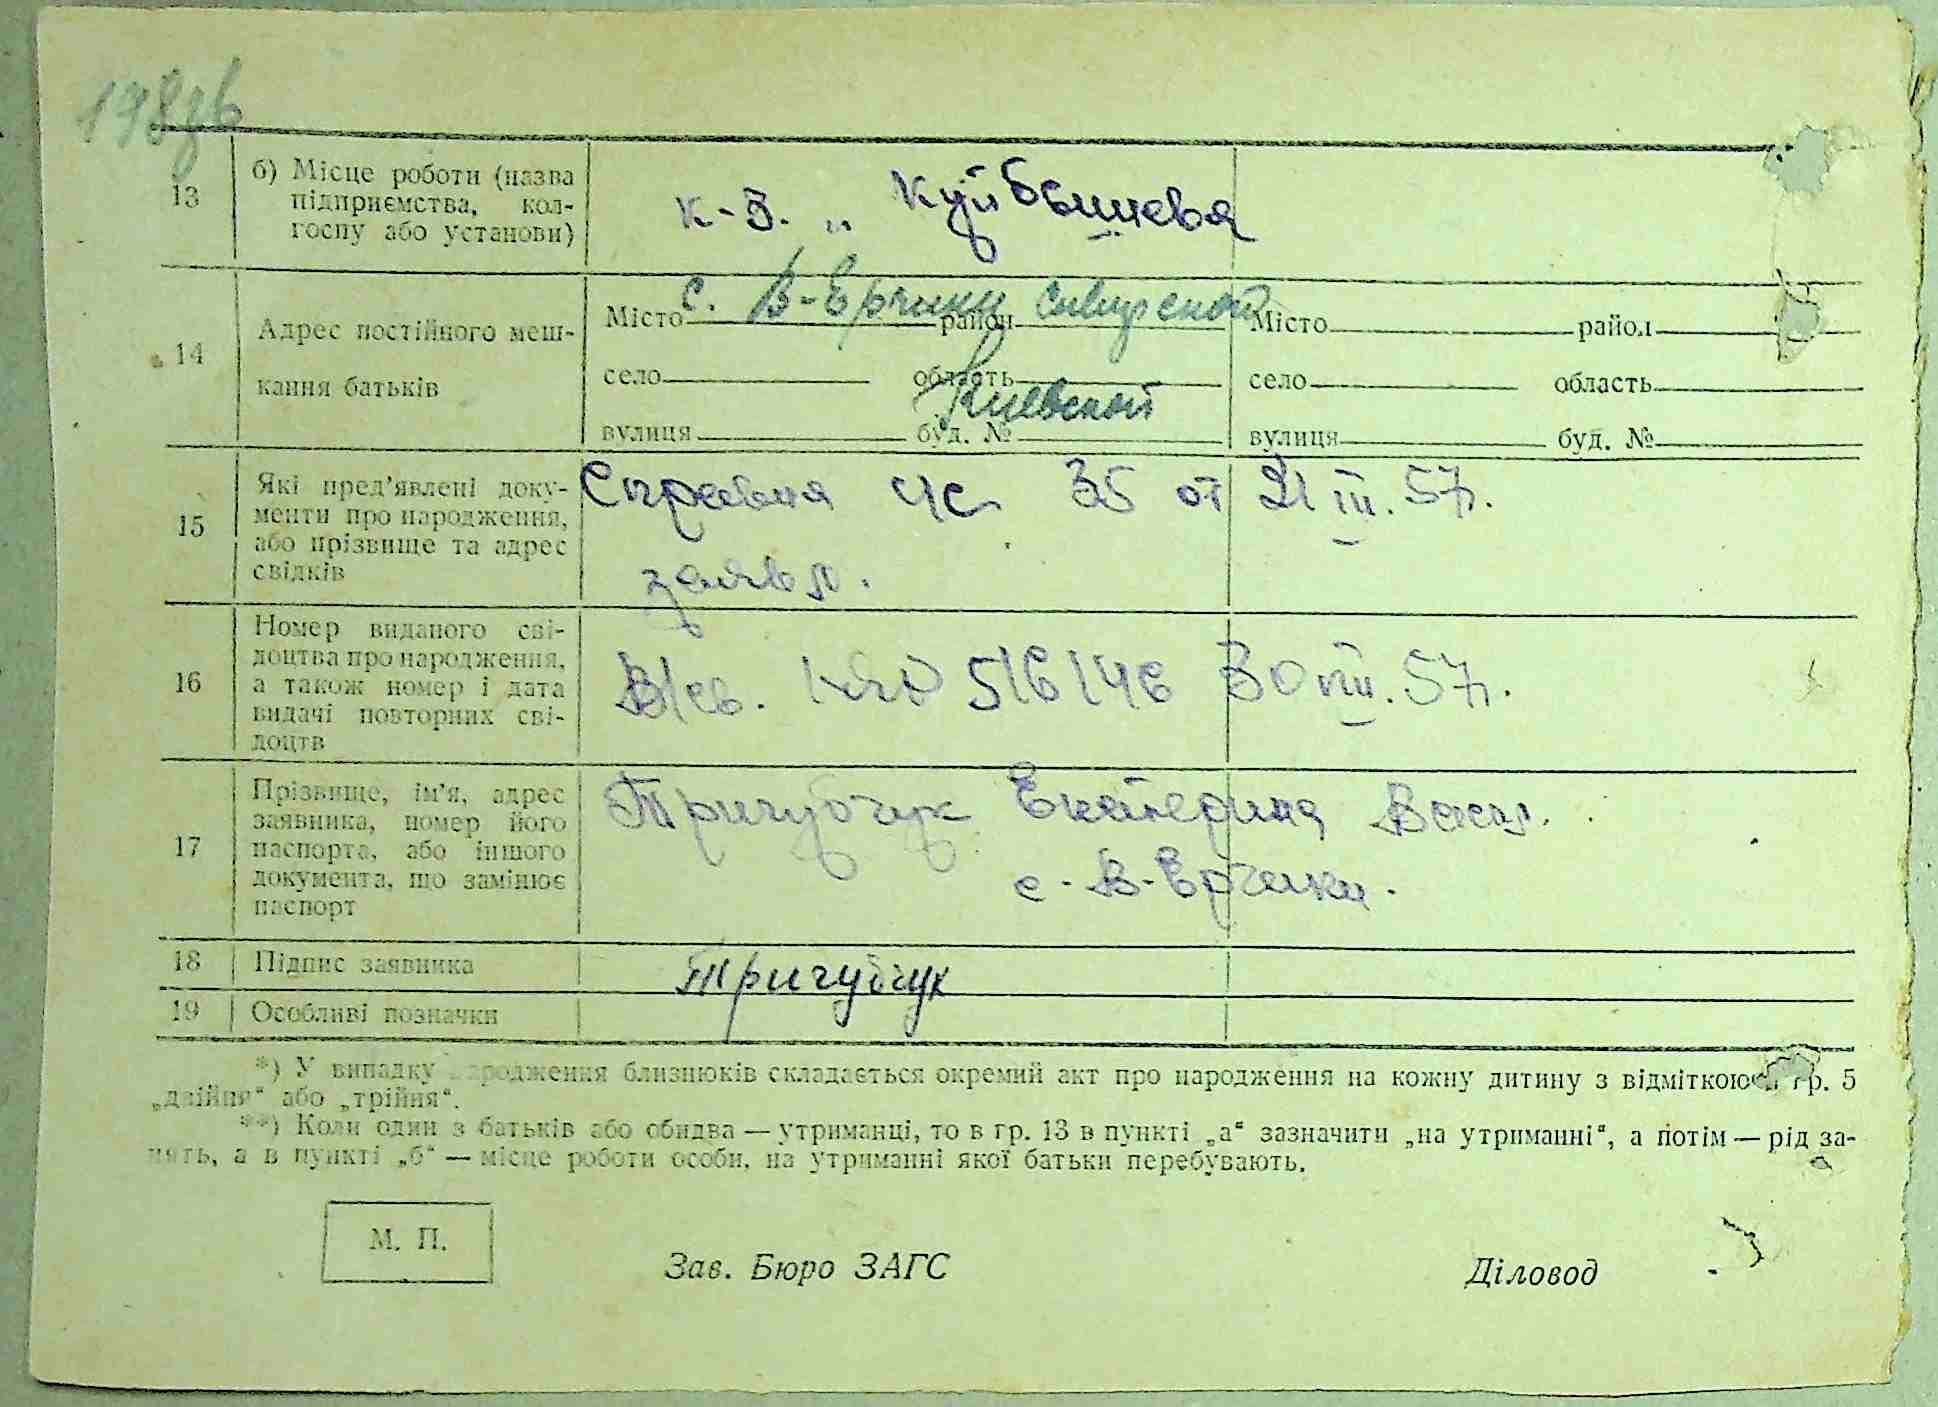 198зв
13
б) Місце роботи (назва
підприємства, кол-
госпу або установи)
к-з. „ Куйбышева
14
Адрес постійного меш-
кання батьків
с. В-Ерчики Сквирской
Місто район
село область
Киевской
вулиця буд. №
Місто район
село область
вулиця буд. №
15
Які пред'явлені доку-
менти про народження,
або прізвище та адрес
свідків
Справка с/с 35 от 21 III. 57г.
заявл.
16
Номер виданого сві-
доцтва про народження,
а також номер і дата
видачі повторних сві-
доцтв
В/св. 516146 30 VIII. 57г.
17
Прізвище, ім'я, адрес
заявника, номер його
паспорта, або іншого
документа, що замінює
паспорт
Тригубчук Екатерина Васил.
с. В-Ерчики.
18 Підпис заявника
Тригубчук
19 Особливі позначки
*) У випадку народження близнюків складається окремий акт про народження на кожну дитину з відміткою в гр. 5
„двійня“ або „трійня“.
**) Коли один з батьків або обидва — утриманці, то в гр. 13 в пункті „а“ зазначити „на утриманні“, а потім — рід за-
нять, а в пункті „б“ — місце роботи особи, на утриманні якої батьки перебувають.
М. П.
Зав. Бюро ЗАГС
Діловод